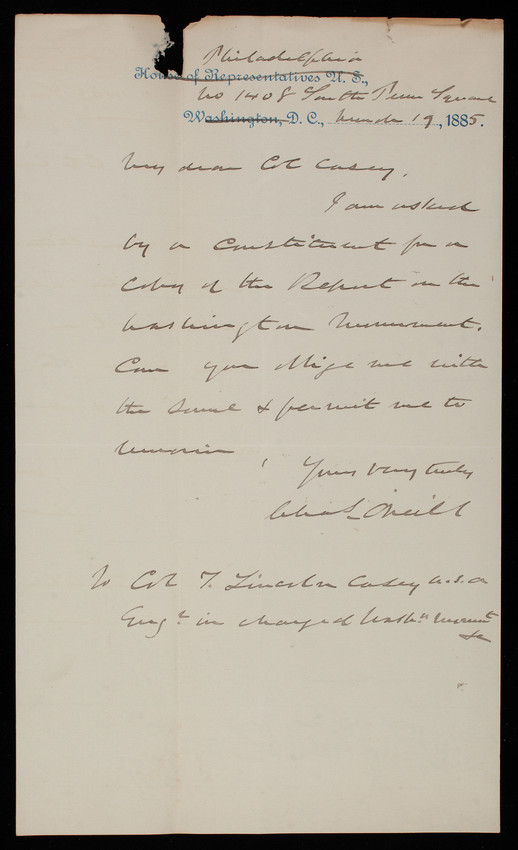 Philadelphia
House of Representatives U. S.,
No 1408 South Penn Square
Washington, D. C., March 19, 1885.
My dear Col Casey,
I am asked
by a constituent for a
copy of the Report on the
Washington Monument.
Can you oblige me with
the same & permit me to
remain
Yours very truly
Chas O'Neill
To Col T. Lincoln Casey U.S.A
Engr in charge of Washn Monmt